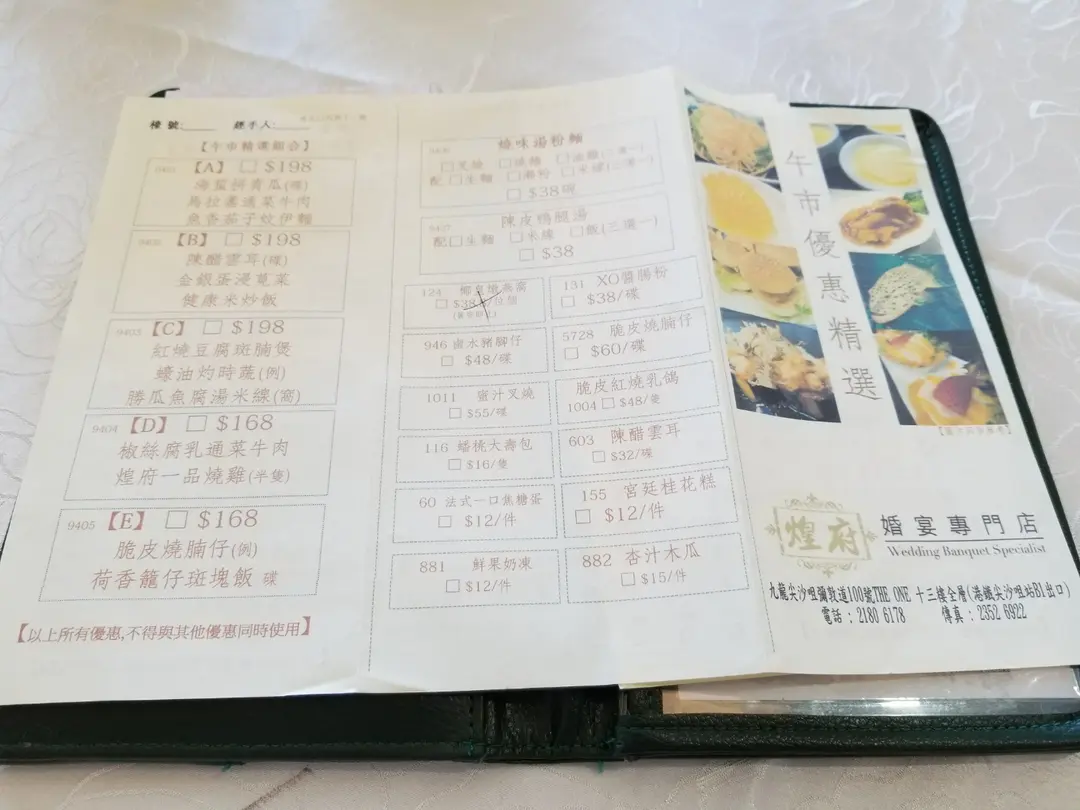 檯號:
經手人:
【午市精選組合】
9401 【A】 □ $198
海蜇拼青瓜(碟)
馬拉盞通菜牛肉
魚香茄子炆伊麵
9402 【B】 □ $198
陳醋雲耳(碟)
金銀蛋浸莧菜
健康米炒飯
9403 【C】 □ $198
紅燒豆腐斑腩煲
蠔油灼時蔬(例)
勝瓜魚腐湯米線(窩)
9404 【D】 □ $168
椒絲腐乳通菜牛肉
煌府一品燒雞(半隻)
9405 【E】 □ $168
脆皮燒腩仔(例)
荷香籠仔斑塊飯 碟
【以上所有優惠,不得與其他優惠同時使用】
燒味湯粉麵
□叉燒 □燒鴨 □油雞(三選一)
配□生麵 □瀨粉 □米線(三選一)
□ $38/碗
陳皮鴨腿湯
配□生麵 □米線 □飯(三選一)
□ $38
124
131 XO醬腸粉
□ $38/碟
946 鹵水豬腳仔
□ $48/碟
5728 脆皮燒腩仔
□ $60/碟
1011 蜜汁叉燒
□ $55/碟
脆皮紅燒乳鴿
1004 □ $48/隻
116 蟠桃大壽包
□ $16/隻
603 陳醋雲耳
□ $32/碟
60 法式一口焦糖蛋
□ $12/件
155 宮廷桂花糕
□ $12/件
881 鮮果奶凍
□ $12/件
882 杏汁木瓜
□ $15/件
午市優惠精選
【圖片只供參考】
煌府
婚宴專門店
Wedding Banquet Specialist
九龍尖沙咀彌敦道100號THE ONE 十三樓全層(港鐵尖沙咀站B1出口)
電話 : 2180 6178 傳真 : 2352 6922